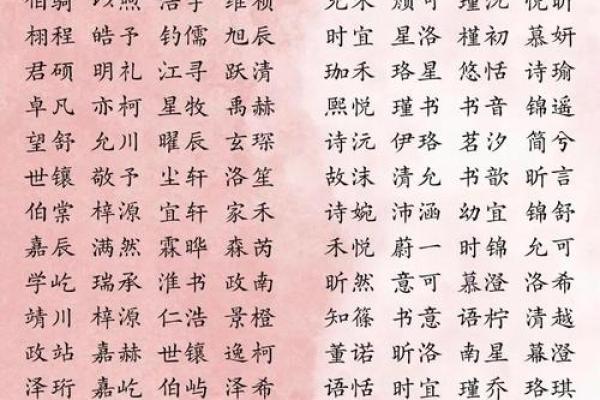 栩程 皓予 钧儒 旭辰 时宜 星洛 槿初 慕妍
君硕 明礼 江寻 跃清 珈禾 珞星 悠恬 诗瑜
卓凡 亦柯 星牧 禹赫 熙悦 瑾书 书音 锦遥
望舒 允川 曜辰 玄琛 诗沅 伊珞 茗汐 简兮
世镶 敬予 尘轩 洛笙 故沫 清允 书歆 昕言
伯棠 梓源 宜轩 家禾 诗婉 沛涵 幼宜 锦舒
嘉辰 满然 霖晔 森芮 禾悦 蔚一 时锦 允可
学屹 瑞承 淮书 政南 昕然 意可 慕澄 洛希
靖川 梓源 仁浩 景橙 知篠 书意 语柠 清越
政站 嘉赫 世镶 逸柯 董诺 昕洛 南星 幕澄
泽珩 嘉屹 伯屿 泽希 语恬 时宜 瑾乔 珞琪